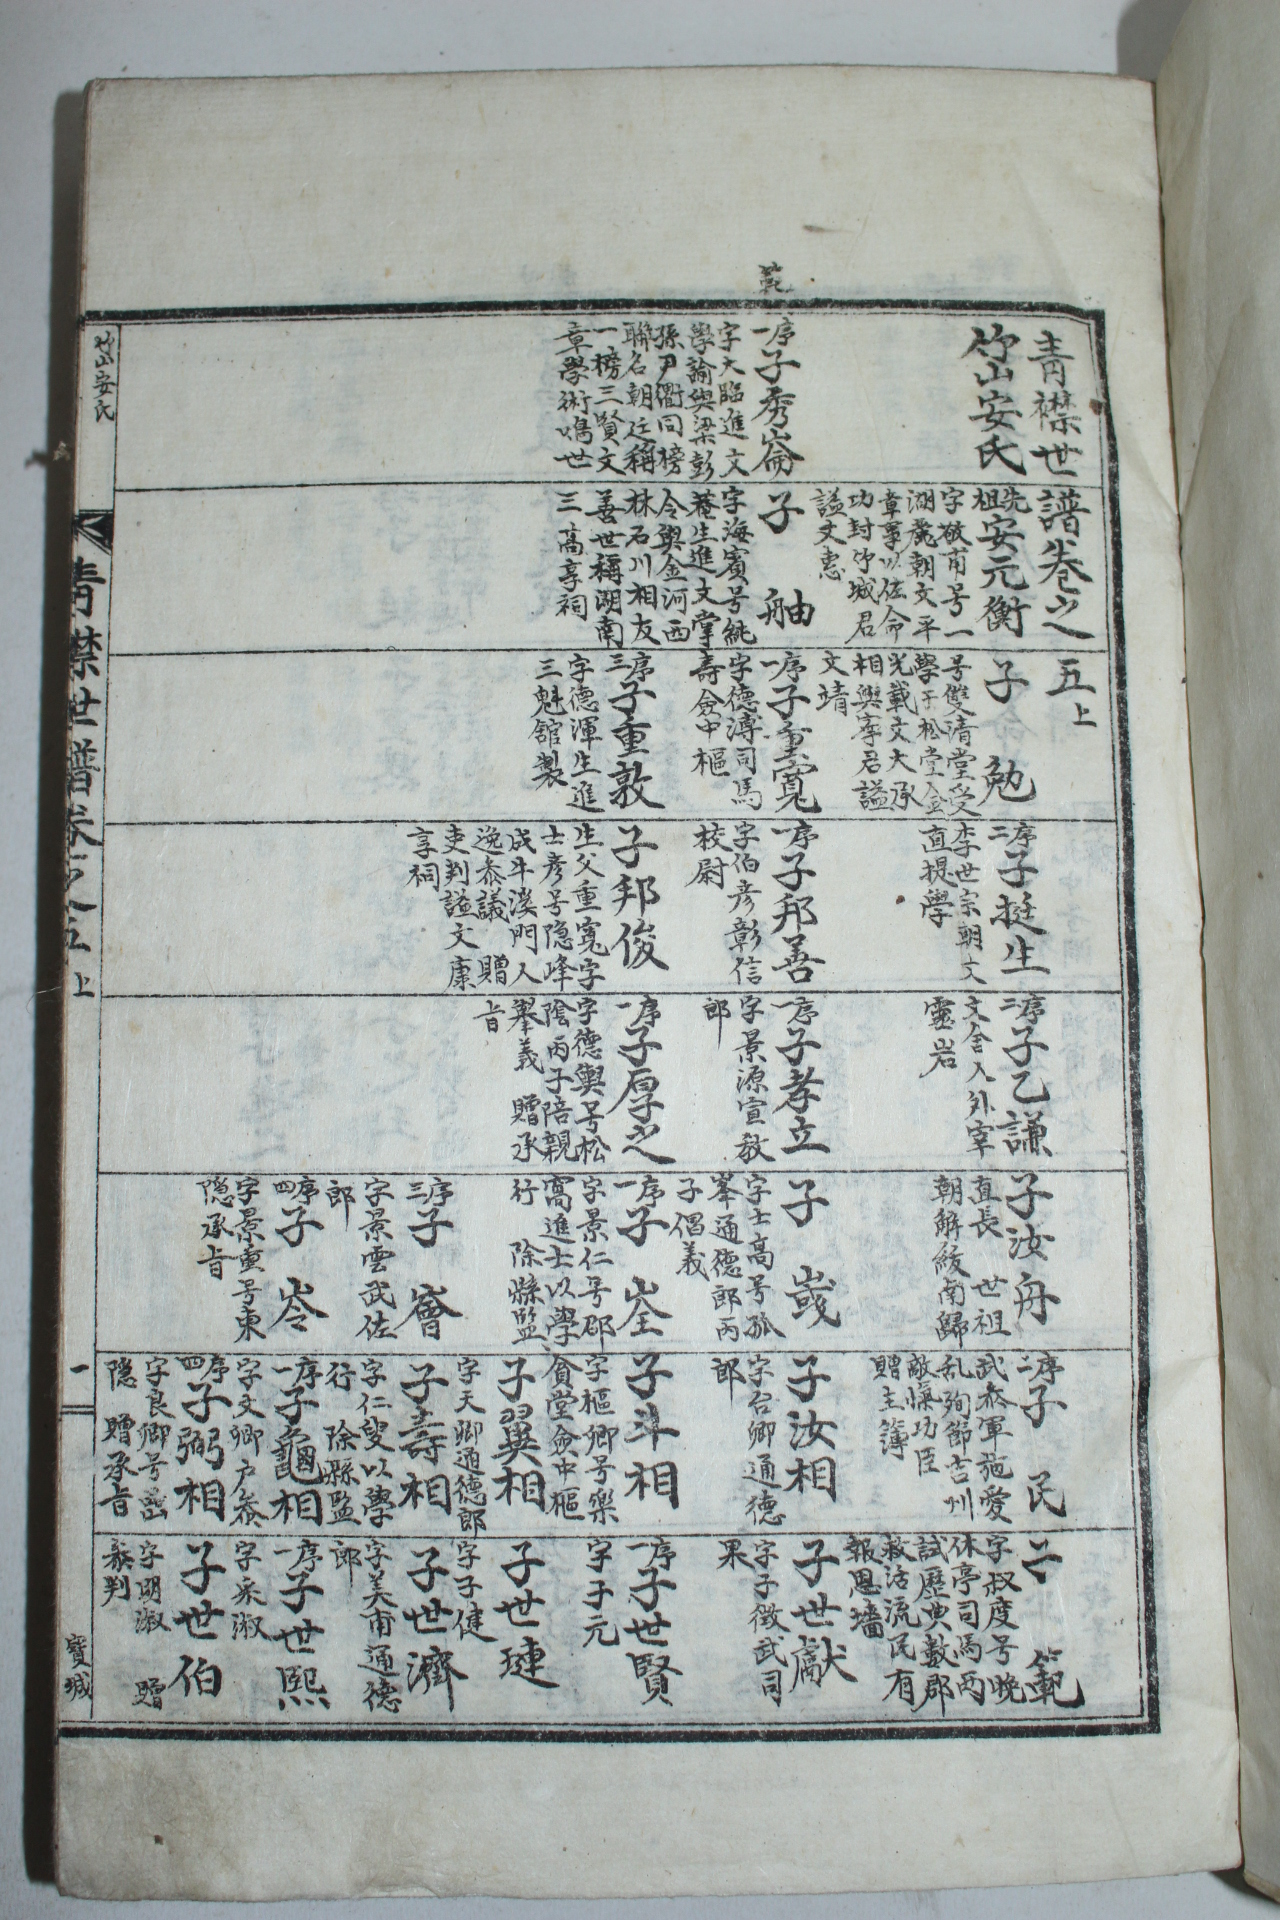 青襟世譜卷之五上
竹山安氏
先祖安元衡
字敬甫号一
湖麗朝文平
章事以佐命
功封竹城君
謚文惠
子勉
号雙清堂受
學于松堂金
光載文大承
相興寧君謚
文靖
序二子挺生
李世宗朝文
直提學
序二子乙謙
文舍入外宰
靈岩
子汝舟
直長 世祖
朝解綬南歸
序二子民
武叅軍施愛
乱殉節吉州
敵愾功臣
贈主簿
子範
字叔度号晚
休亭司馬丙
試歷典數郡
救活流民有
報恩墻
範
序一子秀崙
字大臨進文
學諭與梁彭
孫尹衢同榜
聯名朝廷稱
一榜三賢文
章學術鳴世
子舳
字海賓号純
菴生進文掌
令與金河西
林石川相友
善世稱湖南
三高享祠
序一子重寬
字德溥司馬
壽僉中樞
序一子邦善
字伯彦彰信
校尉
序一子孝立
字景源宣教
郎
子㟴
字士高号孤
峯通德郎丙
子倡義
子汝相
字台卿通德
郎
子世獻
字子徵武司
果
序三子重敦
字德渾生進
三魁舘製
子邦俊
生父重寬字
士彦号隐峰
成牛溪門人
逸叅議 贈
吏判謚文康
享祠
序一子厚之
字德輿号松
陰丙子陪親
擧義 贈承
旨
序一子峑
字景仁号郡
窩進士以學
行 除縣監
子斗相
字樞卿号樂
貪堂僉中樞
序一子世賢
字于元
子翼相
字天卿通德郎
子世璉
字子健
序三子嶒
字景雲武佐
郎
子壽相
字仁叟以學
行 除縣監
子世濟
字美甫通德
郎
序四子岺
字景重号東
隐承旨
序一子龜相
字文卿户叅
序一子世熙
字采淑
序四子弼相
字良卿号崗
隐 贈承旨
子世伯
字明淑 贈
叅判
竹山安氏
青襟世譜卷之五上
一
寶城